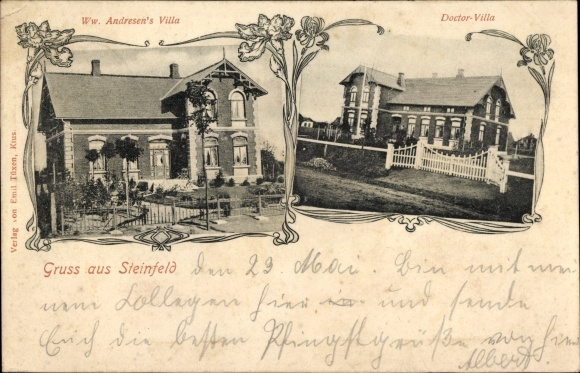 Ww. Andresen's Villa
Doctor-Villa
Verlag von Emil Tüxen, Kus.
Gruss aus Steinfeld den 23. Mai. Bin mit mei
nem Collegen hier und sende
Euch die besten Pfingstgrüße von hier
Albert.